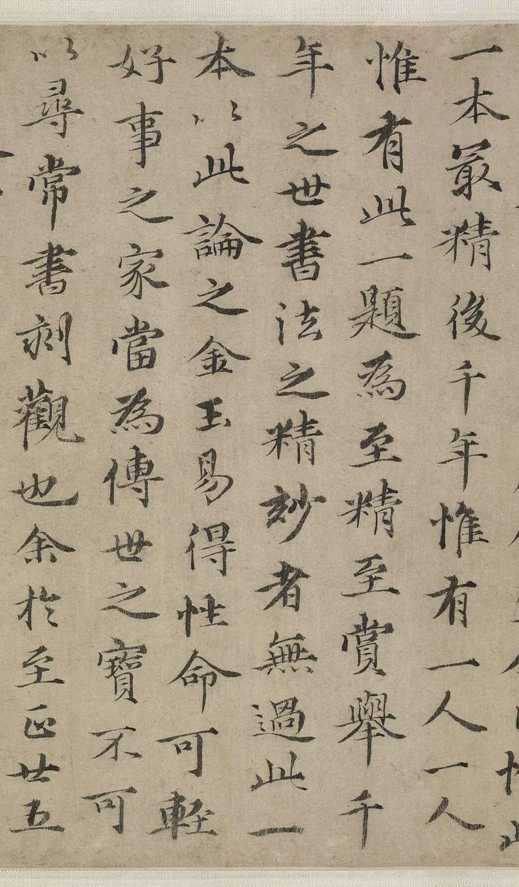 一本最精後千年惟有一人一人
惟有此一題為至精至賞舉千
年之世書法之精玅者無過此一
本以此論之金玉易得性命可輕
好事之家當為傳世之寶不可
以尋常書刻觀也余於至正廿五